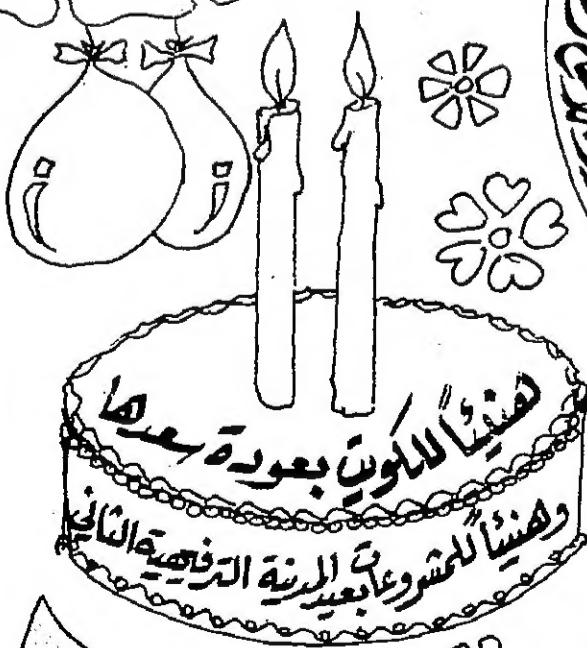 هنيئاً للكويت بعودة سعدها
وهنيئاً للمشروعات بعيد المدينة الترفيهية الثاني